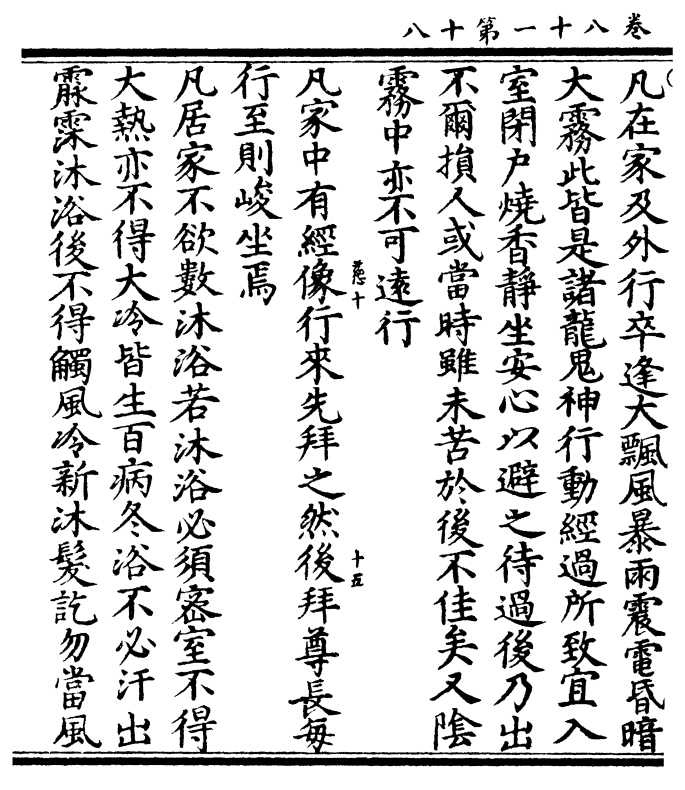 卷八十一第十八
凡在家及外行卒逢大飄風暴雨震電昏暗
大霧此皆是諸龍鬼神行動經過所致宜入
室閉戶燒香靜坐安心以避之待過後乃出
不爾損人或當時雖未苦於後不佳矣又陰
霧中亦不可遠行
凡家中有經像行來先拜之然後拜尊長每
行至則峻坐焉
凡居家不欲數沐浴若沐浴必須密室不得
大熱亦不得大冷皆生百病冬浴不必汗出
霡霂沐浴後不得觸風冷新沐髮訖勿當風
十
十五